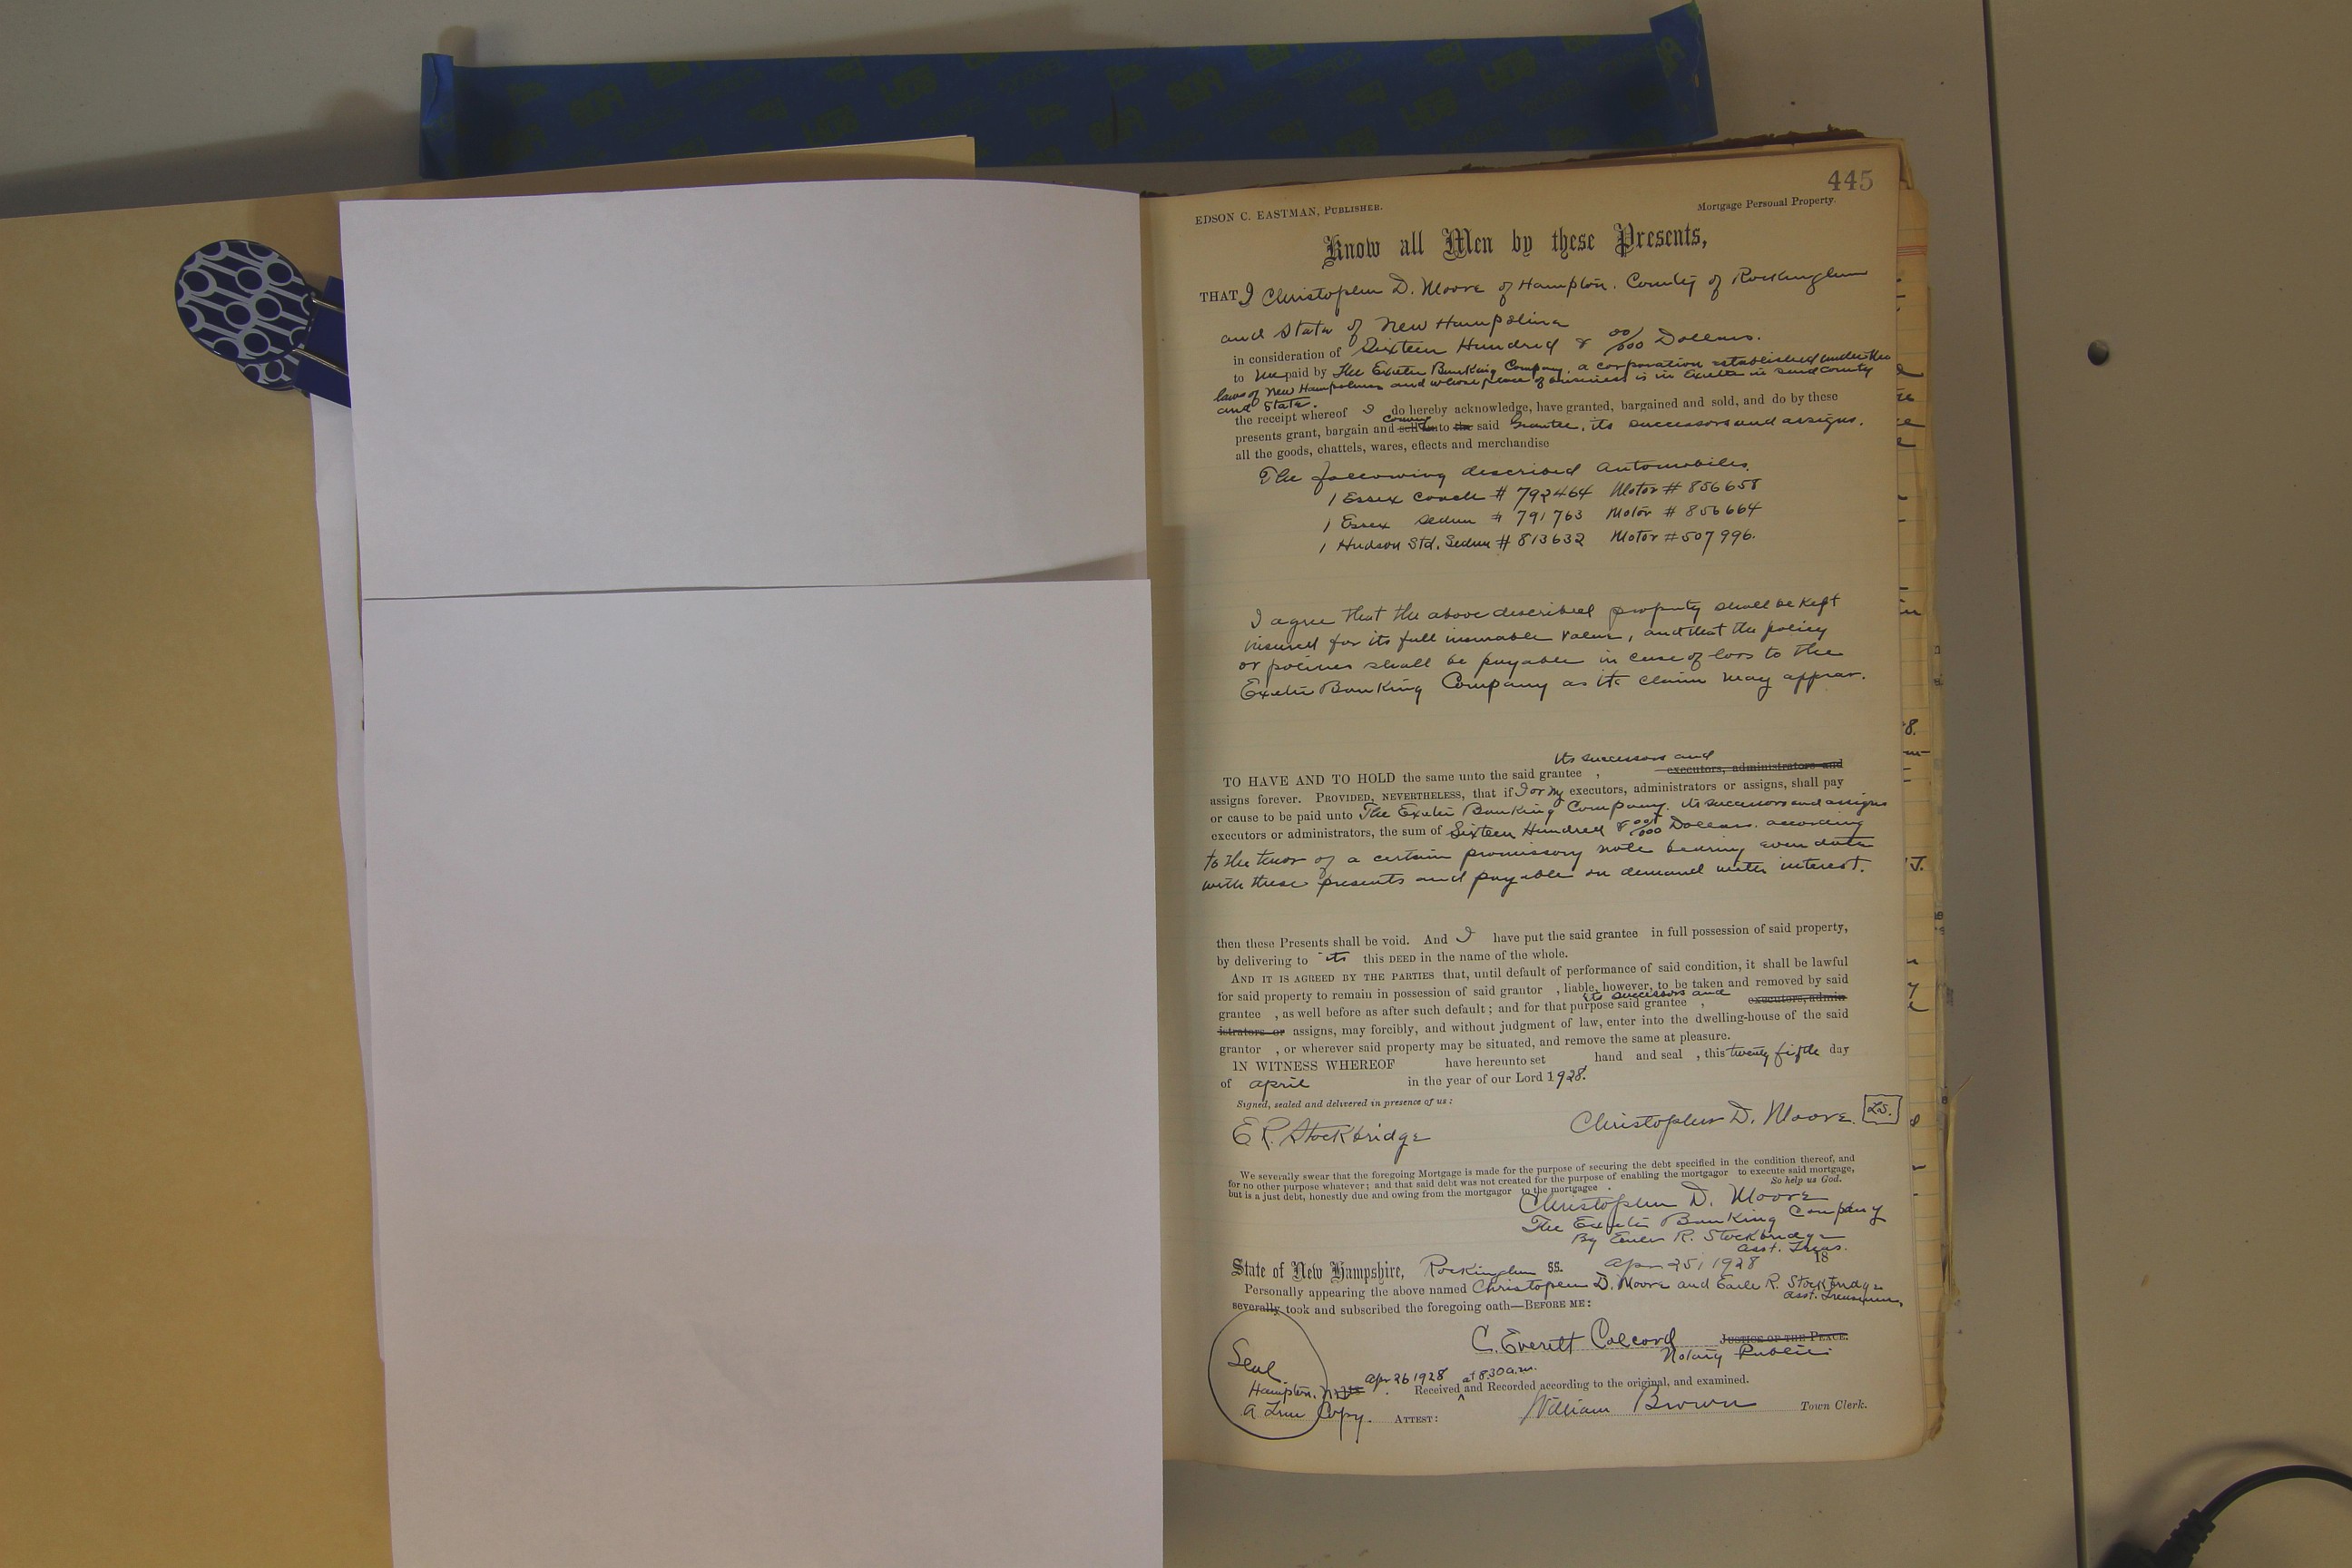 445
EDSON C. EASTMAN, PUBLISHER.
Mortgage Personal Property.
Know all Men by these Presents,
THAT I Christopher D. Moore of Hampton. County of Rockingham
and State of New Hampshire
in consideration of Sixteen Hundred & 00/100 Dollars.
to me paid by The Exeter Banking Company, a corporation established under the
laws of New Hampshire and whose place of business is in Exeter in said County
and State.
the receipt whereof I do hereby acknowledge, have granted, bargained and sold, and do by these
convey
presents grant, bargain and sell unto the said Grantee, its successors and assigns.
all the goods, chattels, wares, effects and merchandise
The following described automobiles.
1 Essex Coach # 792464 Motor # 856658
1 Essex Sedan # 791763 Motor # 856664
1 Hudson Std. Sedan # 813632 Motor # 507996.
I agree that the above described property shall be kept
insured for its full insurable value, and that the policy
or policies shall be payable in case of loss to the
Exeter Banking Company as its claim may appear.
its successors and
TO HAVE AND TO HOLD the same unto the said grantee , executors, administrators and
assigns forever. PROVIDED, NEVERTHELESS, that if I or my executors, administrators or assigns, shall pay
or cause to be paid unto The Exeter Banking Company. its successors and assigns
executors or administrators, the sum of Sixteen Hundred & 00/100 Dollars. according
to the tenor of a certain promissory note bearing even date
with these presents and payable on demand with interest.
then these Presents shall be void. And I have put the said grantee in full possession of said property,
by delivering to its this DEED in the name of the whole.
AND IT IS AGREED BY THE PARTIES that, until default of performance of said condition, it shall be lawful
for said property to remain in possession of said grantor , liable, however, to be taken and removed by said
its successors and
grantee , as well before as after such default ; and for that purpose said grantee , executors, admin-
istrators or assigns, may forcibly, and without judgment of law, enter into the dwelling-house of the said
grantor , or wherever said property may be situated, and remove the same at pleasure.
IN WITNESS WHEREOF have hereunto set hand and seal , this twenty fifth day
of april in the year of our Lord 1928.
Signed, sealed and delivered in presence of us :
E R. Stockbridge
Christopher D. Moore. L.S.
We severally swear that the foregoing Mortgage is made for the purpose of securing the debt specified in the condition thereof, and
for no other purpose whatever ; and that said debt was not created for the purpose of enabling the mortgagor to execute said mortgage,
but is a just debt, honestly due and owing from the mortgagor to the mortgagee . So help us God.
Christopher D. Moore
The Exeter Banking Company
By Earle R. Stockbridge
Asst. Treas.
State of New Hampshire, Rockingham SS. Apr 25, 1928 18
Personally appearing the above named Christopher D. Moore and Earle R. Stockbridge
Asst. Treasurer,
severally took and subscribed the foregoing oath—BEFORE ME:
C. Everett Colcord JUSTICE OF THE PEACE.
Notary Public.
Seal
Apr 26 1928 at 8.30 a.m.
Hampton, Received and Recorded according to the original, and examined.
A True Copy. ATTEST: William Brown Town Clerk.